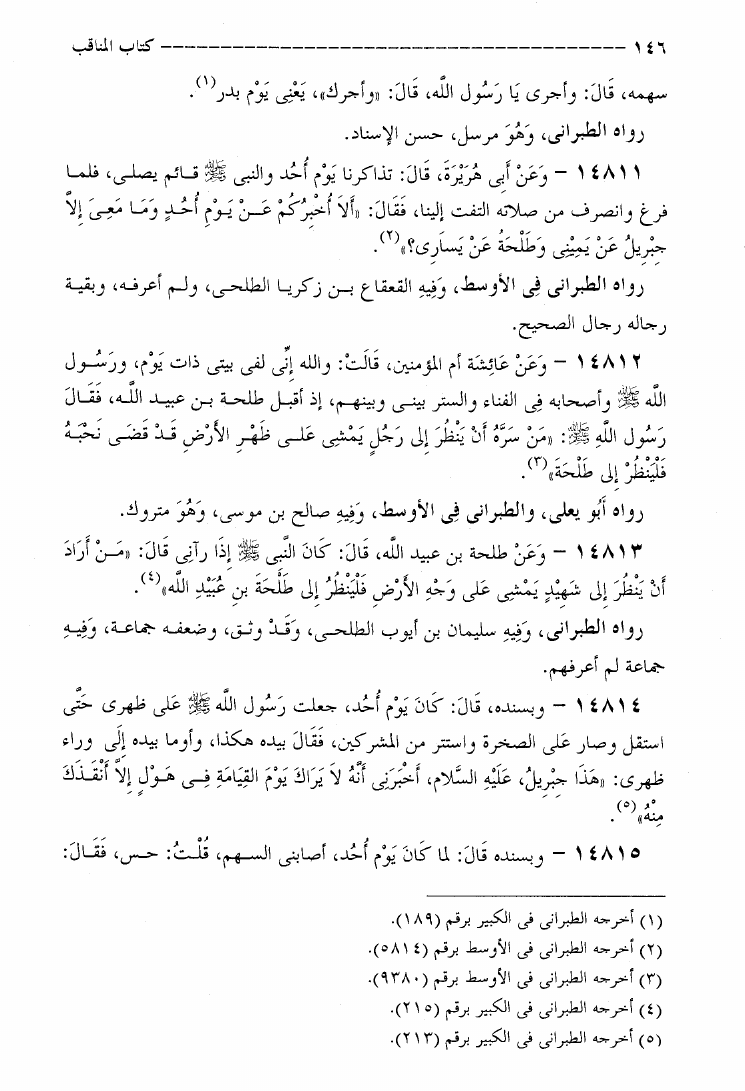 ١٤٦ ـــــــــــــــــــــــــــــــــــــــــــــــــــــــــــ كتاب المناقب
سهمه، قَالَ: وأجرى يَا رَسُول اللَّه، قَالَ: «وأجرك»، يَعْنِى يَوْم بدر(١).
رواه الطبرانى، وَهُوَ مرسل، حسن الإسناد.
١٤٨١١ – وَعَنْ أَبِى هُرَيْرَةَ، قَالَ: تذاكرنا يَوْم أُحُد والنبى ﷺ قائم يصلى، فلما
فرغ وانصرف من صلاته التفت إلينا، فَقَالَ: «أَلاَ أُخْبِرُكُمْ عَنْ يَوْمِ أُحُدٍ وَمَا مَعِىَ إِلاَّ
جِبْرِيلُ عَنْ يَمِيْنِى وَطَلْحَةُ عَنْ يَسَارِى؟»(٢).
رواه الطبرانى فِى الأوسط، وَفِيهِ القعقاع بن زكريا الطلحى، ولم أعرفه، وبقية
رجاله رجال الصحيح.
١٤٨١٢ – وَعَنْ عَائِشَة أم المؤمنين، قَالَتْ: والله إِنِّى لفى بيتى ذات يَوْم، ورَسُول
اللَّه ﷺ وأصحابه فِى الفناء والستر بينى وبينهم، إذ أقبل طلحة بن عبيد اللَّه، فَقَالَ
رَسُول اللَّهِ ﷺ: «مَنْ سَرَّهُ أَنْ يَنْظُرَ إِلى رَجُلٍ يَمْشِى عَلى ظَهْرِ الأَرْضِ قَدْ قَضَى نَحْبَهُ
فَلْيَنْظُرْ إِلى طَلْحَةَ»(٣).
رواه أَبُو يعلى، والطبرانى فِى الأوسط، وَفِيهِ صالح بن موسى، وَهُوَ متروك.
١٤٨١٣ – وَعَنْ طلحة بن عبيد اللَّه، قَالَ: كَانَ النَّبِى ﷺ إِذَا رآنِى قَالَ: «مَنْ أَرَادَ
أَنْ يَنْظُرَ إِلى شَهِيْدٍ يَمْشِى عَلى وَجْهِ الأَرْضِ فَلْيَنْظُرُ إِلى طَلْحَةَ بنِ عُبَيْدِ اللَّه»(٤).
رواه الطبرانى، وَفِيهِ سليمان بن أيوب الطلحى، وَقَدْ وثق، وضعفه جماعة، وَفِيهِ
جماعة لم أعرفهم.
١٤٨١٤ – وبسنده، قَالَ: كَانَ يَوْم أُحُد، جعلت رَسُول اللَّه ﷺ عَلى ظهرى حَتَّى
استقل وصار عَلى الصخرة واستتر من المشركين، فَقَالَ بيده هكذا، وأوما بيده إِلَى وراء
ظهرى: «هَذَا جِبْرِيلُ، عَلَيْهِ السَّلام، أَخْبَرَنِى أَنَّهُ لاَ يَرَاكَ يَوْمَ القِيَامَةِ فِى هَوْلٍ إِلاَّ أَنْقَذَكَ
مِنْهُ»(٥).
١٤٨١٥ – وبسنده قَالَ: لما كَانَ يَوْم أُحُد، أصابنى السهم، قُلْتُ: حس، فَقَالَ:
(١) أخرجه الطبرانى فى الكبير برقم (١٨٩).
(٢) أخرجه الطبرانى فى الأوسط برقم (٥٨١٤).
(٣) أخرجه الطبرانى فى الأوسط برقم (٩٣٨٠).
(٤) أخرجه الطبرانى فى الكبير برقم (٢١٥).
(٥) أخرجه الطبرانى فى الكبير برقم (٢١٣).